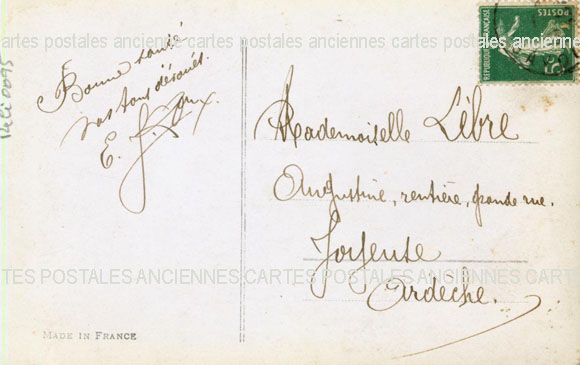 Bonne santé
vos tous dévoués.
E.
Mademoiselle Libre
Augustine, rentière, grande rue.
Joyeuse
Ardèche.
MADE IN FRANCE
REPUBLIQUE FRANÇAISE
POSTES
cartes postales anciennes cartes postales anciennes cartes postales
CARTES POSTALES ANCIENNES CARTES POSTALES ANCIENNES CARTES